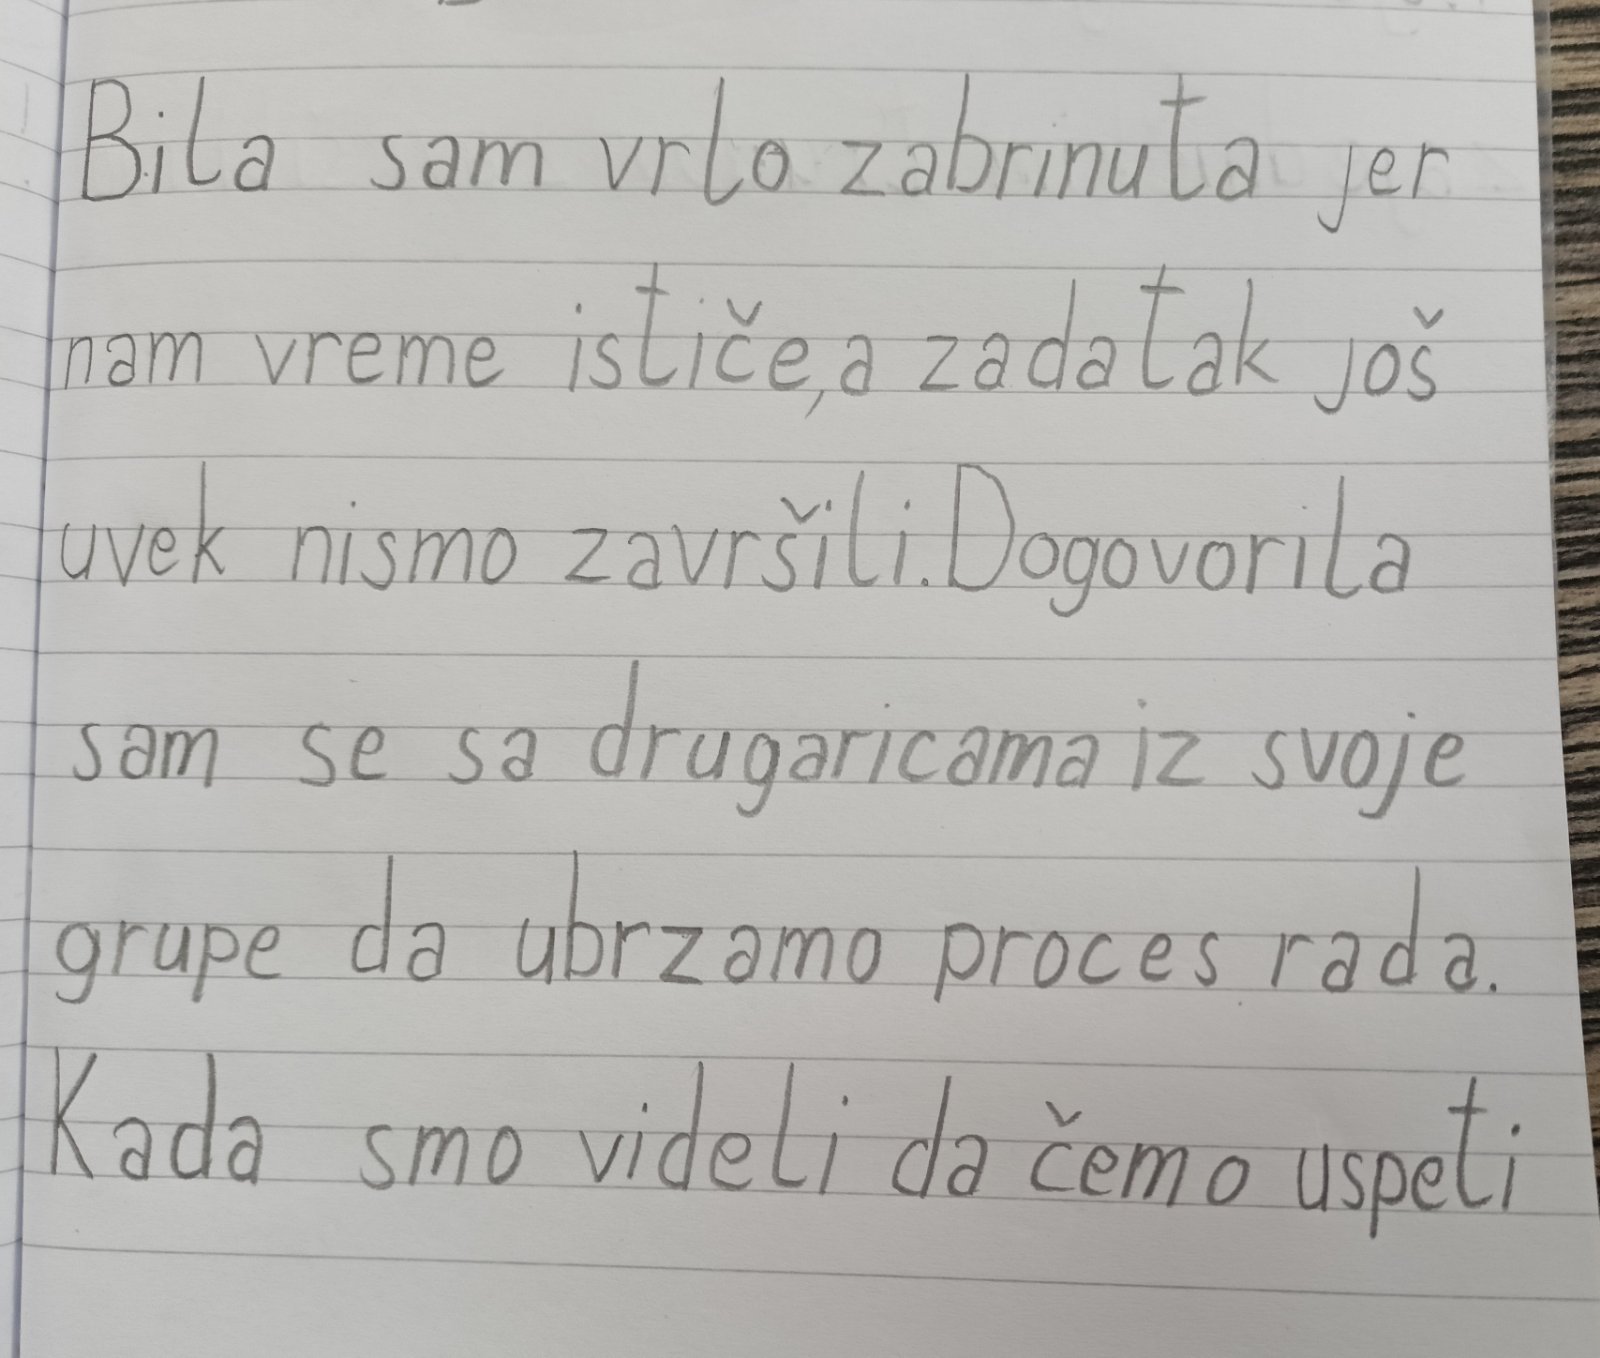 Bila sam vrlo zabrinuta jer
nam vreme ističe, a zadatak još
uvek nismo završili. Dogovorila
sam se sa drugaricama iz svoje
grupe da ubrzamo proces rada.
Kada smo videli da čemo uspeti